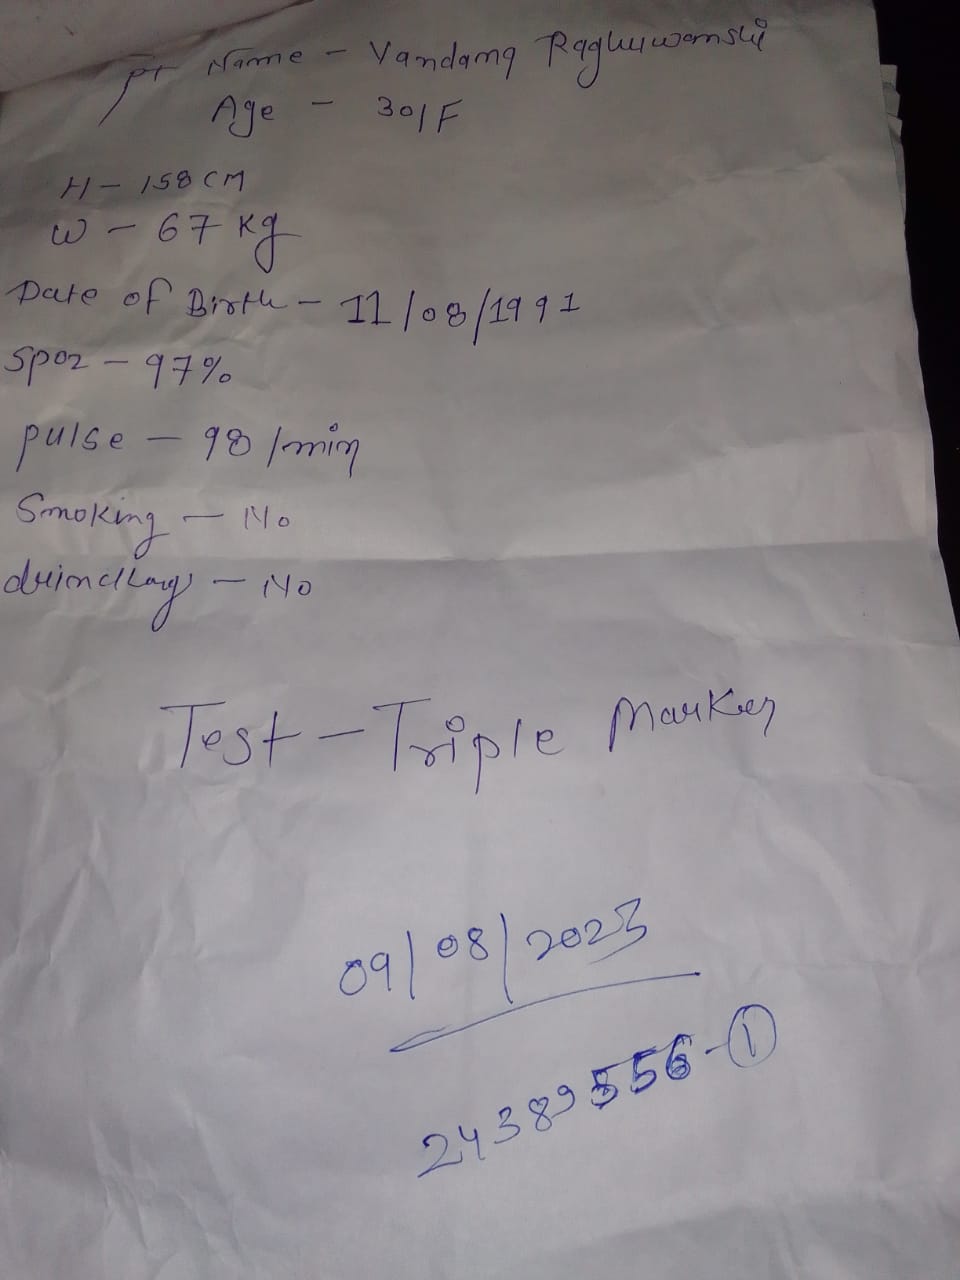 Pt Name - Vandana Raghuwanshi
Age - 30/F
H - 158 CM
W - 67 Kg
Date of Birth - 11/08/1991
Spo2 - 97%
pulse - 98 /min
Smoking - No
- No
Test - Triple Marker
09/08/2023
24389556-①